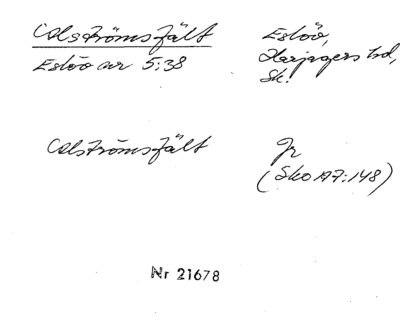 Ahlströmsfält Eslöv,
Eslöv nr 5:38 Harjagers hd,
Sk.
Ahlströmsfält Jr
(Sko A7:148)
Nr 21678